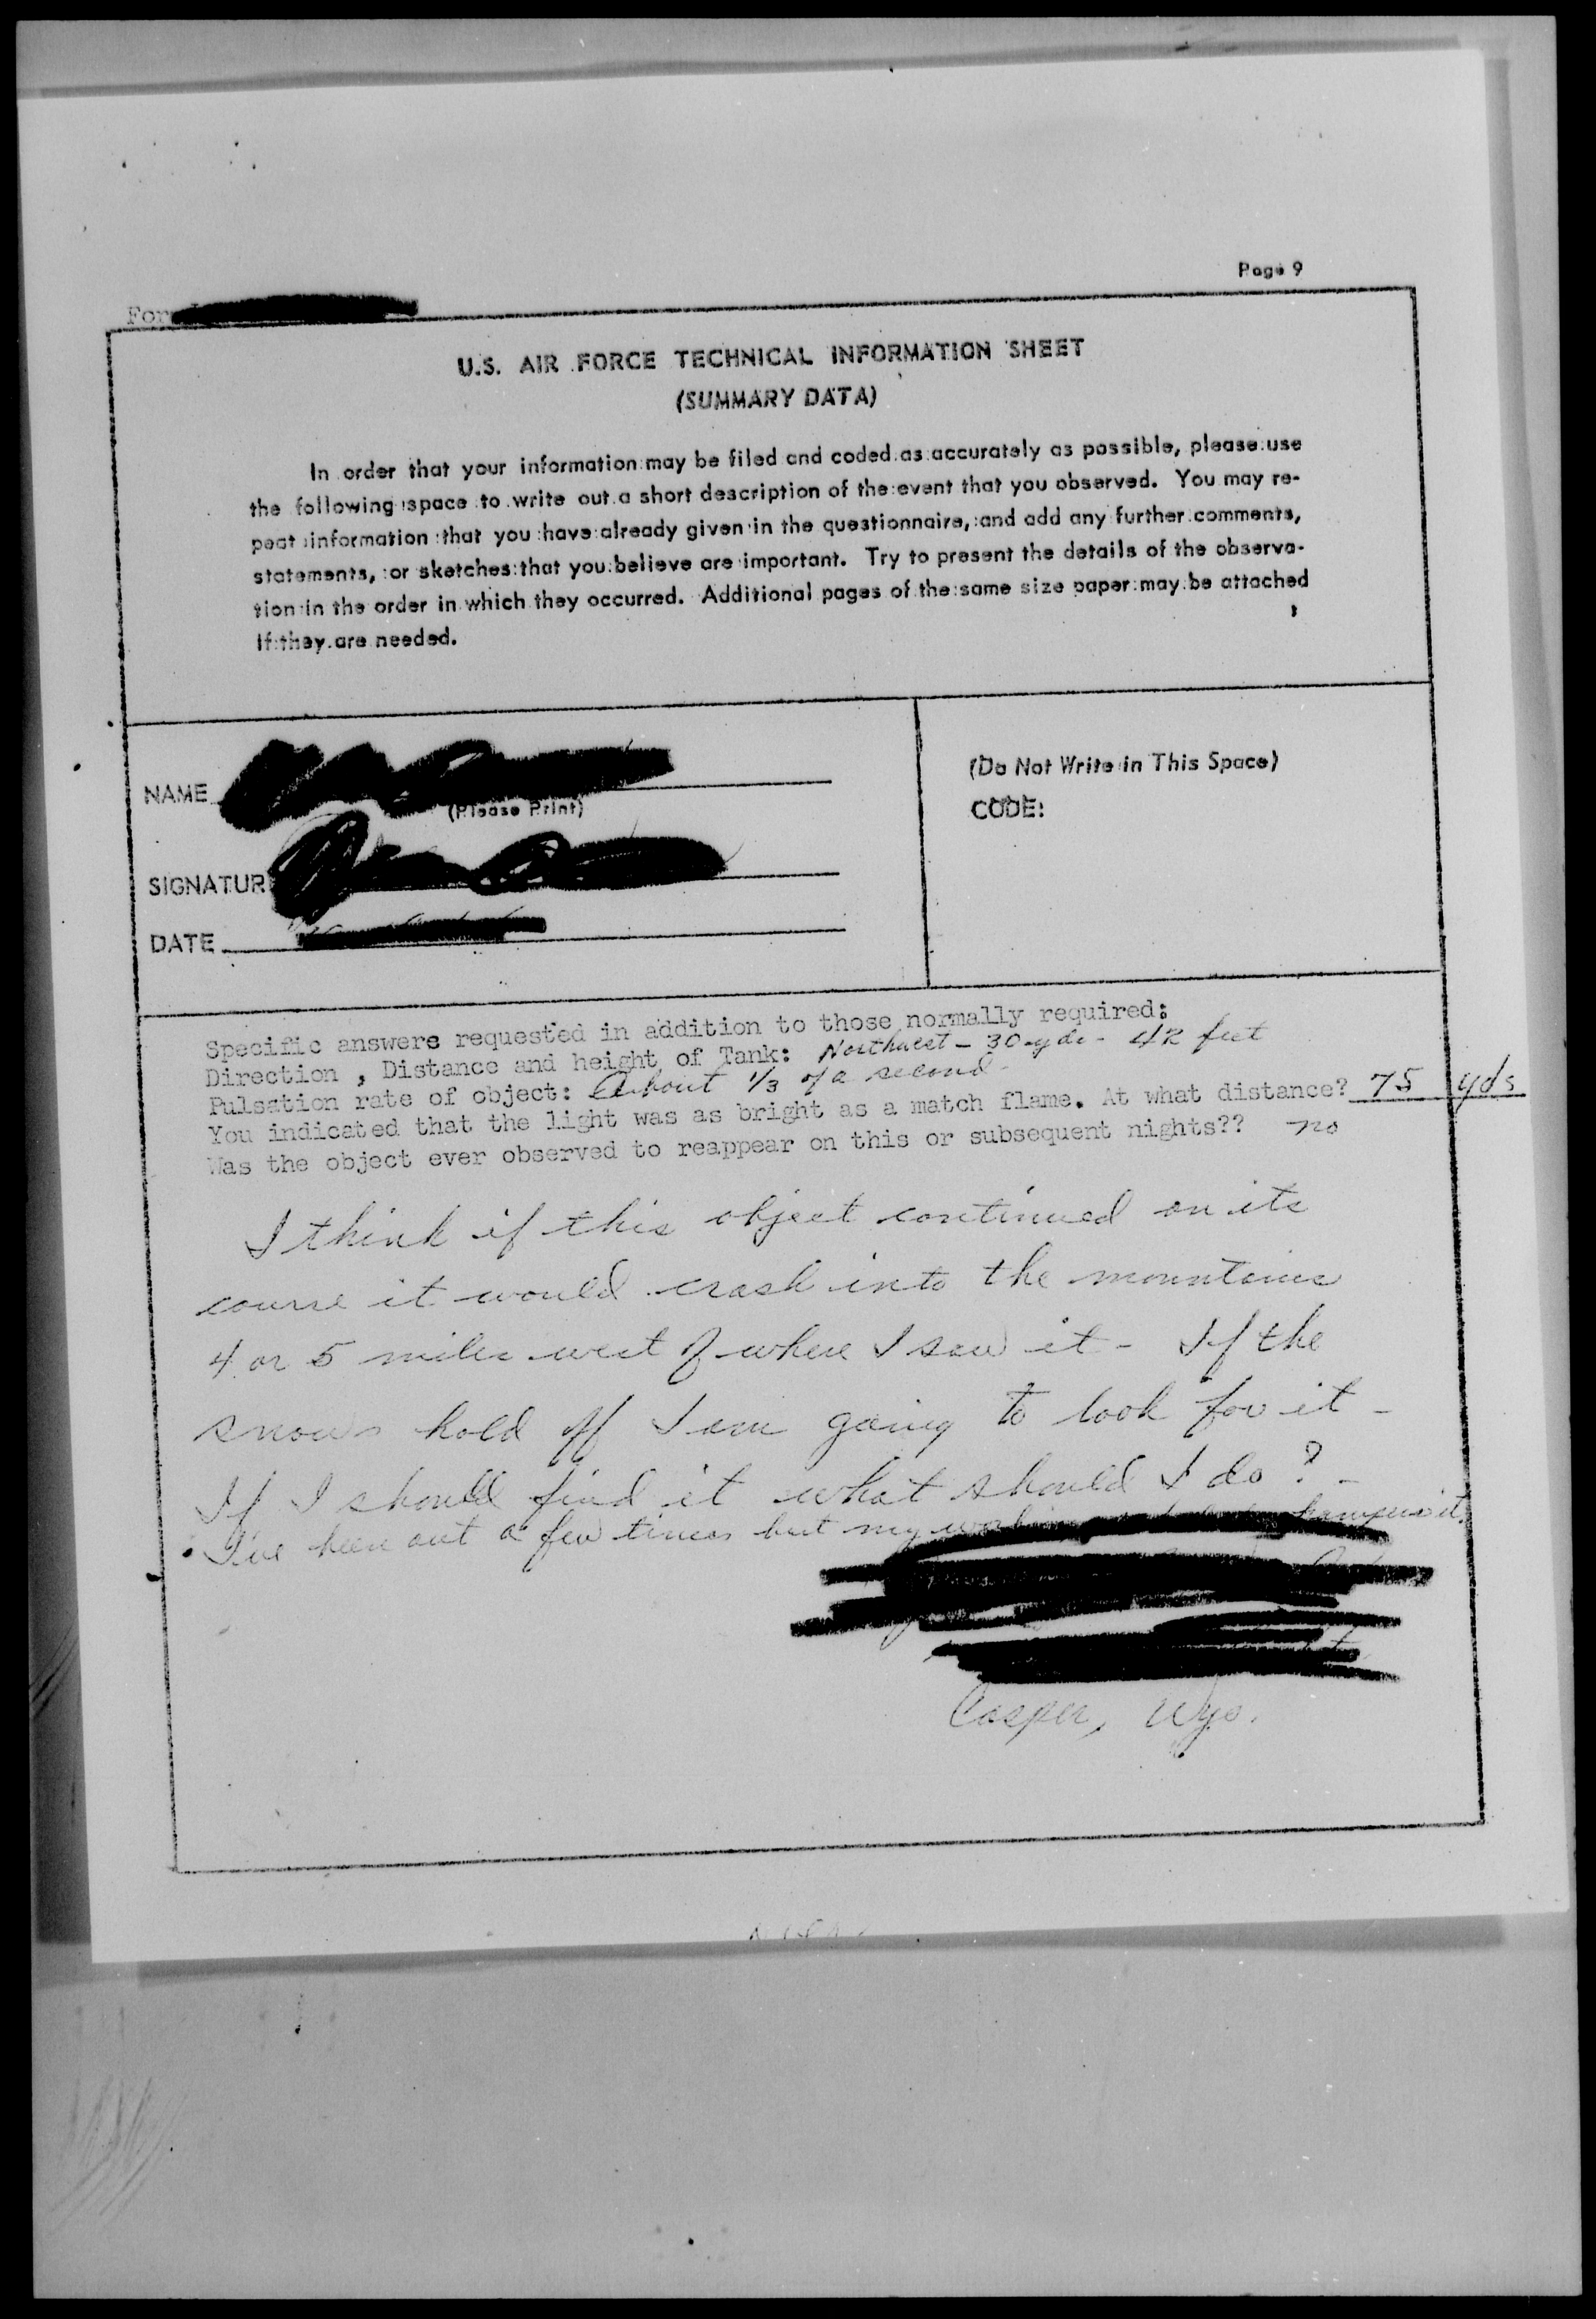 Page 9
For
U.S. AIR FORCE TECHNICAL INFORMATION SHEET
(SUMMARY DATA)
In order that your information may be filed and coded as accurately as possible, please use
the following space to write out a short description of the event that you observed. You may re-
peat information that you have already given in the questionnaire, and add any further comments,
statements, or sketches that you believe are important. Try to present the details of the observa-
tion in the order in which they occurred. Additional pages of the same size paper may be attached
if they are needed.
NAME
(Please Print)
SIGNATUR
DATE
(Do Not Write in This Space)
CODE:
Specific answers requested in addition to those normally required:
Direction , Distance and height of Tank: Northwest - 30 yds - 42 feet
Pulsation rate of object: About 1/3 of a second -
You indicated that the light was as bright as a match flame. At what distance? 75 yds
Was the object ever observed to reappear on this or subsequent nights?? no
I think if this object continued on its
course it would crash into the mountains
4 or 5 miles west of where I saw it - If the
snows hold off I am going to look for it -
If I should find it what should I do? -
I've been out a few times but my it.
Casper, Wyo.